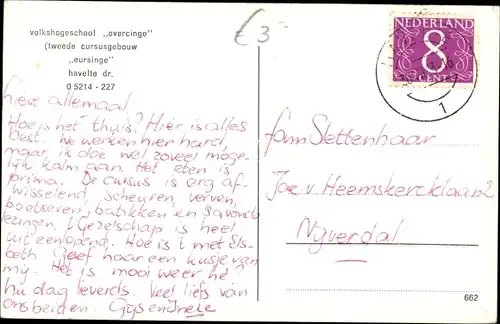 volkshogeschool „overcinge"
(tweede cursusgebouw
„eursinge"
havelte dr.
0 5214 - 227
€ 3-
NEDERLAND
8
CENT
1
Lieve allemaal
Hoe is het thuis? Hier is alles
best. We werken hier hard,
maar ik doe wel zoveel moge-
lijk kalm aan. Het eten is
prima. De cursus is erg af-
wisselend, scheuren, verven,
boetseren, batikken en 's avonds
lezingen. 't Gezelschap is heel
uiteenlopend. Hoe is 't met Els-
beth Geef haar een kusje van
my. Het is mooi weer hè?
nu dag leverds. Veel liefs van
ons beiden. Gys en Ineke
fam Slettenhaar
Jac. v. Heemskercklaan 2
Nyverdal
662